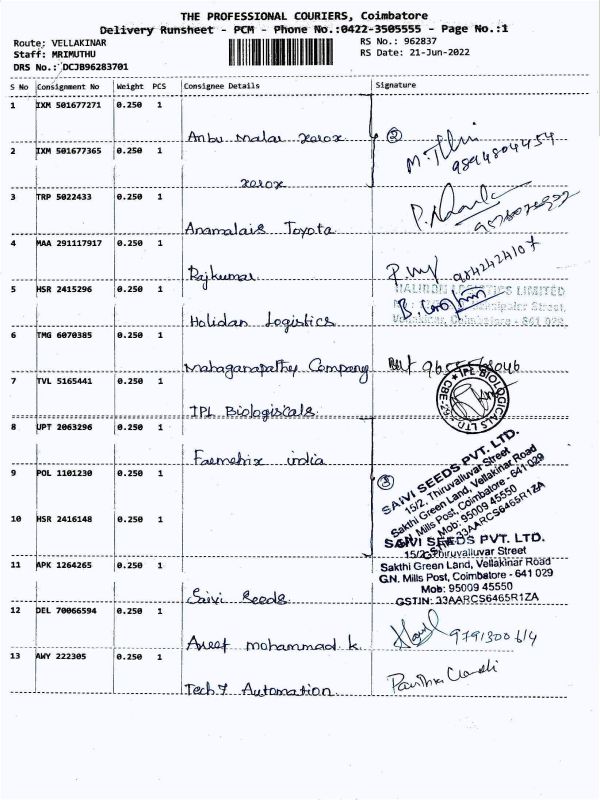 THE PROFESSIONAL COURIERS, Coimbatore
Delivery Runsheet - PCM - Phone No.:0422-3505555 - Page No.:1
Route; VELLAKINAR
RS No.: 962837
Staff: MRIMUTHU
RS Date: 21-Jun-2022
DRS No.: DCJB96283701
S No Consignment No Weight PCS Consignee Details Signature
1 IXM 501677271 0.250 1
Anbu malar xerox
2 IXM 501677365 0.250 1
xerox
3 TRP 5022433 0.250 1
Anamalais Toyota
4 MAA 291117917 0.250 1
Rajkumar
5 HSR 2415296 0.250 1
Holidan Logistics
6 TMG 6070385 0.250 1
Mahaganapathy Company
7 TVL 5165441 0.250 1
IPL Biologicals
8 UPT 2063296 0.250 1
Farmetrix india
9 POL 1101230 0.250 1
10 HSR 2416148 0.250 1
11 APK 1264265 0.250 1
Saivi Seeds
12 DEL 70066594 0.250 1
Aneef mohammad k.
13 AWY 222305 0.250 1
Tech 7 Automation
②
9894804454
9842424107
LOGISTICS LIMITED
Coimbatore - 641 029
IPL BIOLOGICALS LTD
③
SAIVI SEEDS PVT. LTD.
15/2, Thiruvalluvar Street
Sakthi Green Land, Vellakinar Road
G.N. Mills Post, Coimbatore - 641 029
Mob: 95009 45550
GSTIN: 33AARCS6465R1ZA
SAIVI SEEDS PVT. LTD.
15/2, Thiruvalluvar Street
Sakthi Green Land, Vellakinar Road
G.N. Mills Post, Coimbatore - 641 029
Mob: 95009 45550
GSTIN: 33AARCS6465R1ZA